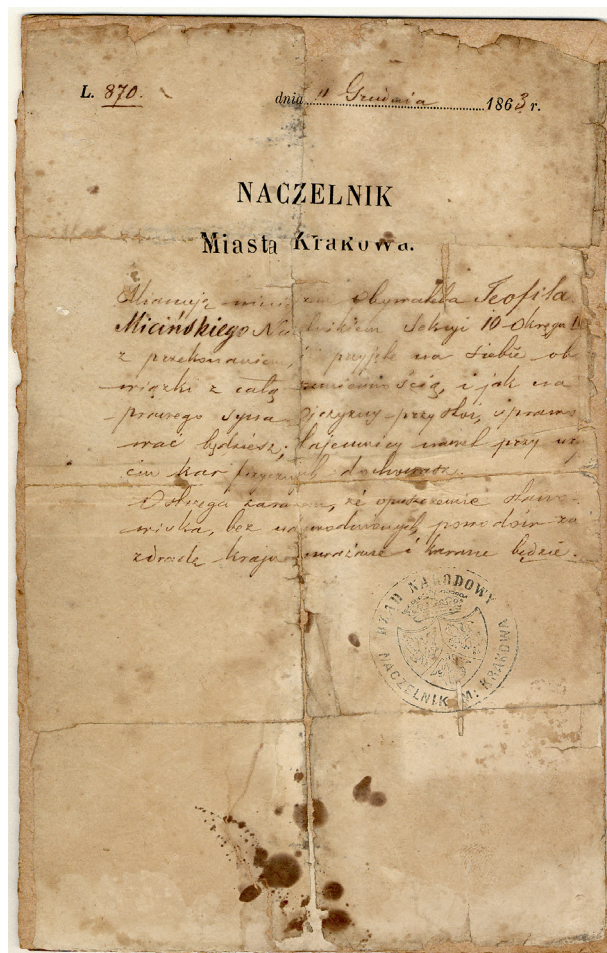 L. 870.
dnia 11 Grudnia 1863 r.
NACZELNIK
Miasta Krakowa.
Mianuję obywatela Teofila
Micińskiego Naczelnikiem Sekcyi 10 Okręgu
z przekonaniem, iż przyjęte na siebie obo
wiązki z całą sumiennością, i jak na
prawego syna Ojczyzny przystoi, sprawo
wać będziesz; tajemnicy nawet przy uży
ciu kar fizycznych dochowasz.
Ostrzega zarazem, że opuszczenie stano
wiska, bez powodów za
zdradę kraju uważane i karane będzie.
RZĄD NARODOWY
NACZELNIK M: KRAKOWA